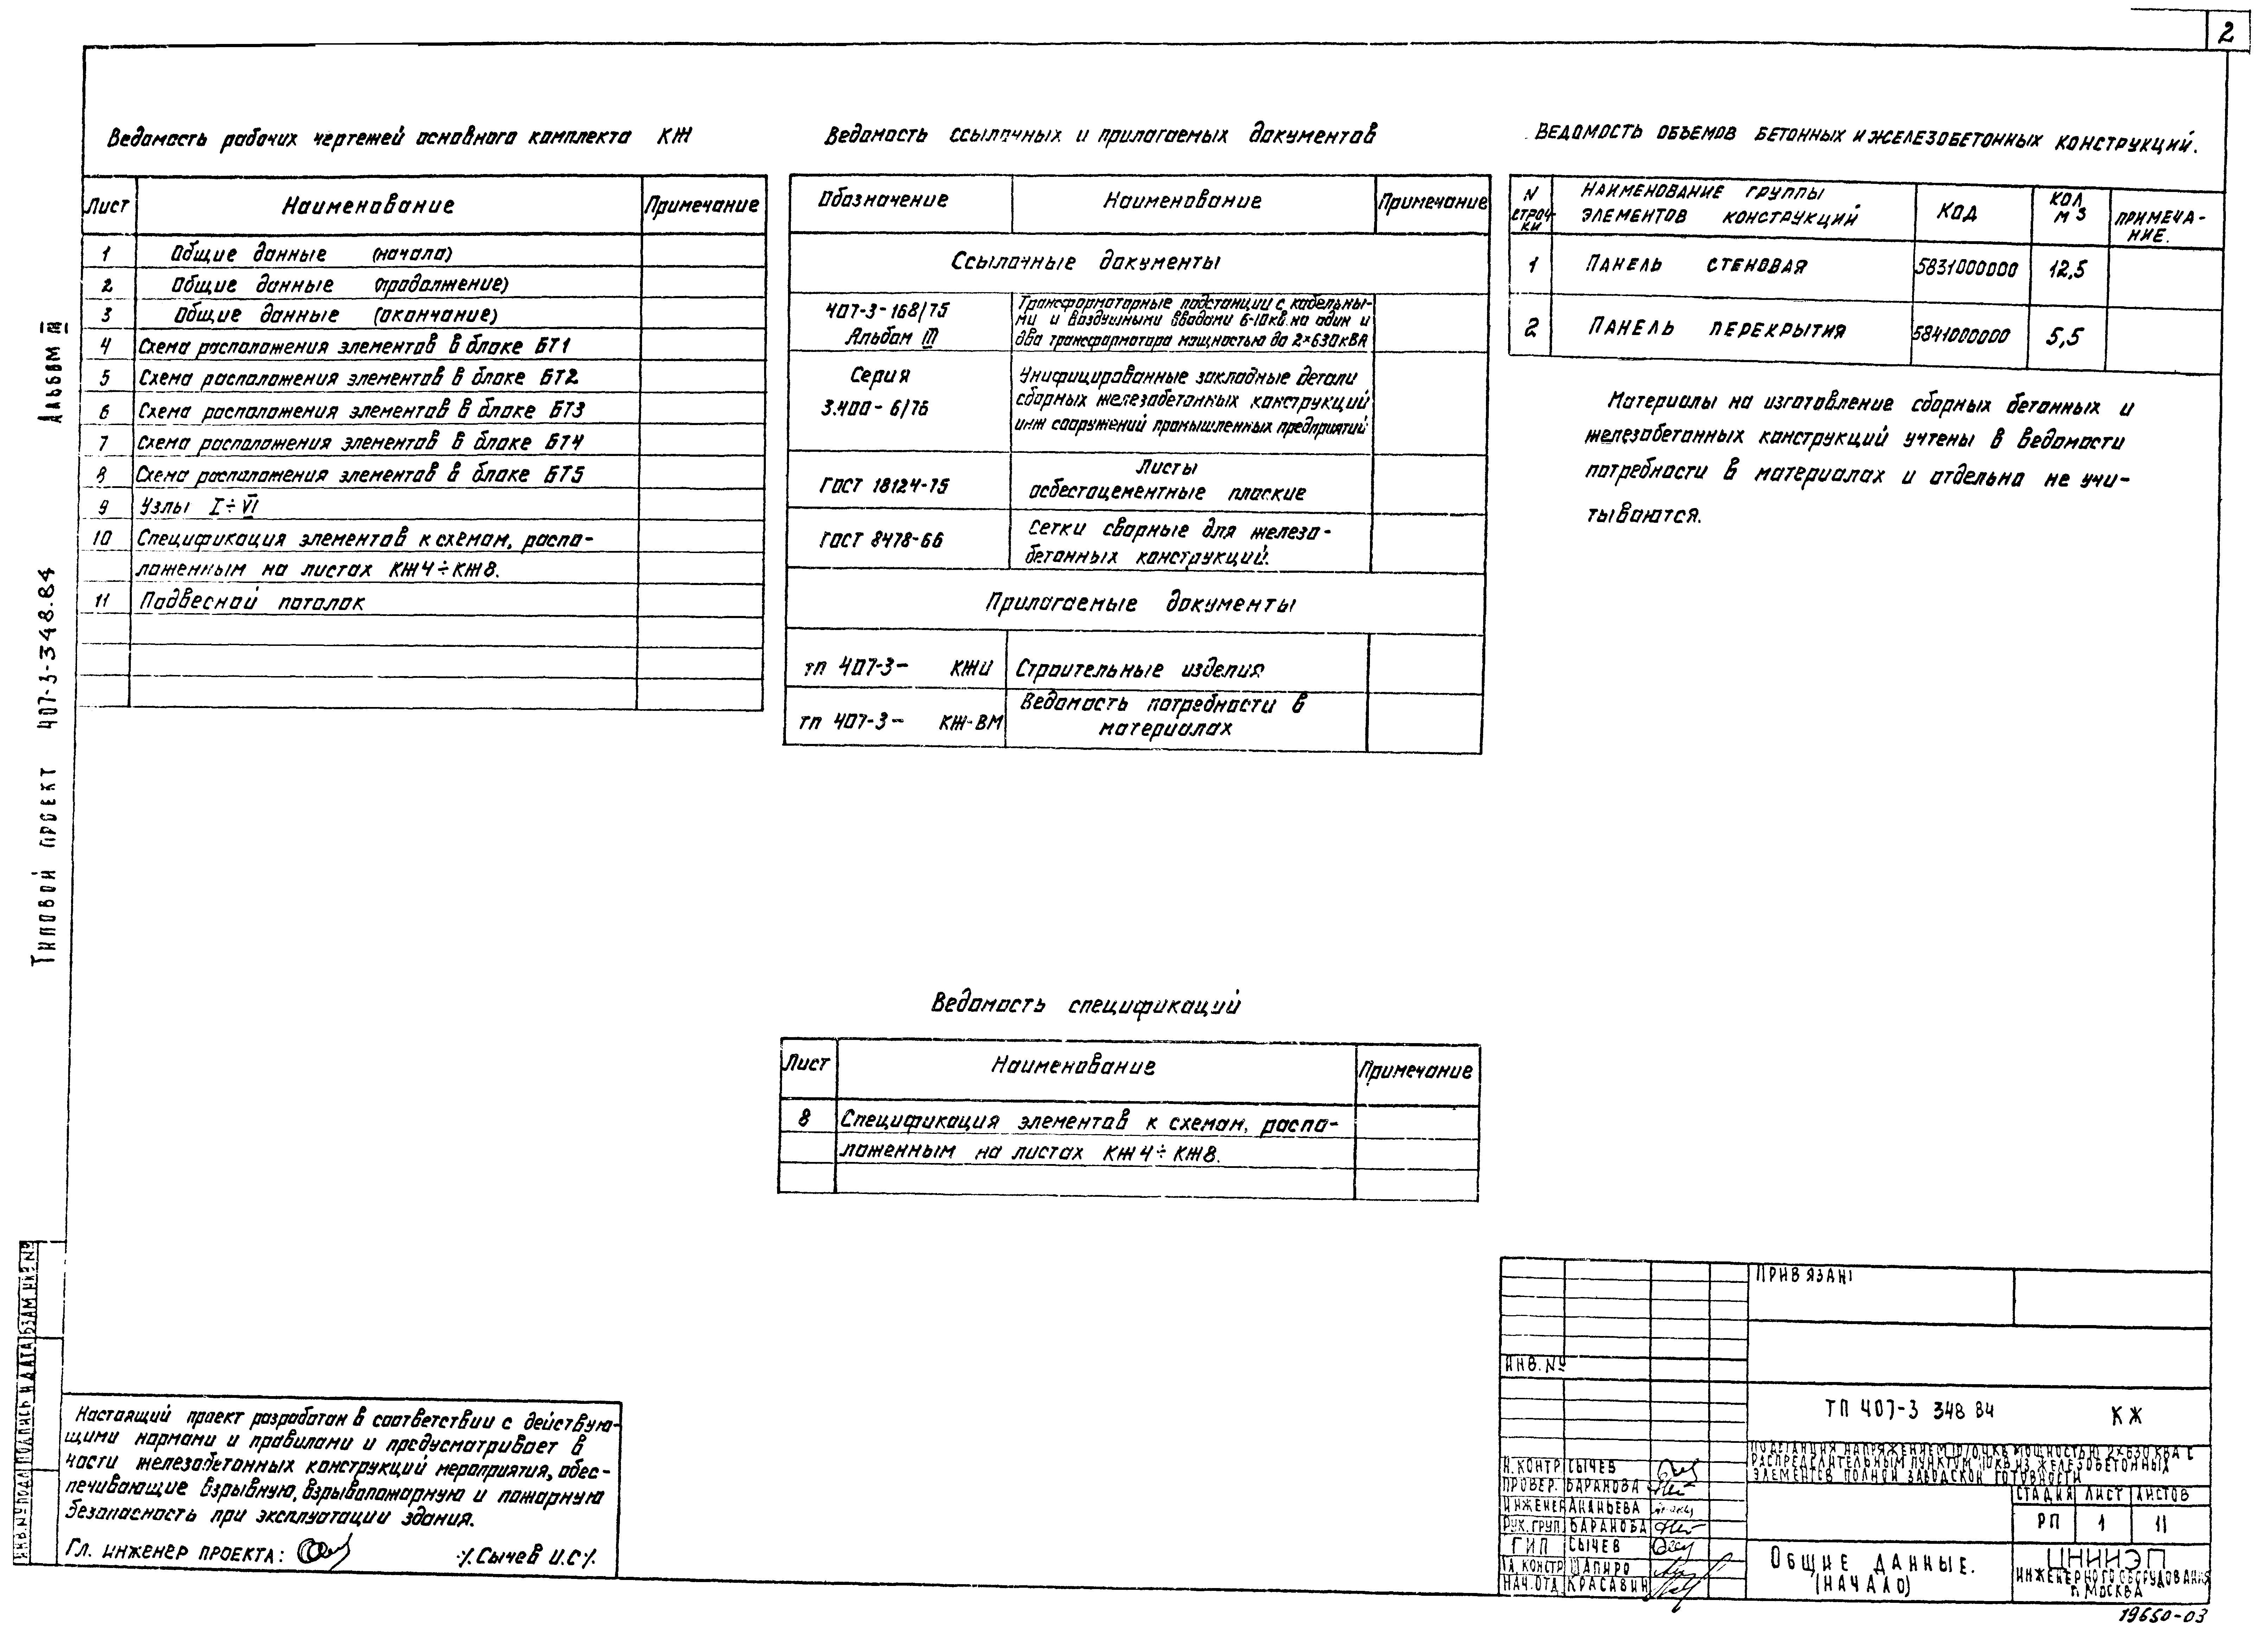 2
Ведомость рабочих чертежей основного комплекта КЖ
Лист Наименование Примечание
1 Общие данные (начало)
2 Общие данные (продолжение)
3 Общие данные (окончание)
4 Схема расположения элементов в блоке БТ1
5 Схема расположения элементов в блоке БТ2
6 Схема расположения элементов в блоке БТ3
7 Схема расположения элементов в блоке БТ4
8 Схема расположения элементов в блоке БТ5
9 Узлы I÷VI
10 Спецификация элементов к схемам, распо-
ложенным на листах КЖ4÷КЖ8.
11 Подвесной потолок
Ведомость ссылочных и прилагаемых документов
Обозначение Наименование Примечание
Ссылочные документы
407-3-168/75
Альбом III
Трансформаторные подстанции с кабельны-
ми и воздушными вводами 6-10кв. на один и
два трансформатора мощностью до 2×630кВА
Серия
3.400-6/76
Унифицированные закладные детали
сборных железобетонных конструкций
инж сооружений промышленных предприятий
ГОСТ 18124-75
Листы
асбестоцементные плоские
ГОСТ 8478-66
Сетки сварные для железо-
бетонных конструкций.
Прилагаемые документы
тп 407-3- КЖИ Строительные изделия
тп 407-3- КЖ-ВМ
Ведомость потребности в
материалах
ВЕДОМОСТЬ ОБЪЕМОВ БЕТОННЫХ И ЖЕЛЕЗОБЕТОННЫХ КОНСТРУКЦИЙ.
N
СТРОЧ-
КИ
НАИМЕНОВАНИЕ ГРУППЫ
ЭЛЕМЕНТОВ КОНСТРУКЦИЙ
КОД
КОЛ
М3
ПРИМЕЧА-
НИЕ.
1 ПАНЕЛЬ СТЕНОВАЯ 5831000000 12,5
2 ПАНЕЛЬ ПЕРЕКРЫТИЯ 5841000000 5,5
Материалы на изготовление сборных бетонных и
железобетонных конструкций учтены в ведомости
потребности в материалах и отдельно не учи-
тываются.
Ведомость спецификаций
Лист Наименование Примечание
8 Спецификация элементов к схемам, распо-
ложенным на листах КЖ4÷КЖ8.
Альбом III
Типовой проект 407-3-348.84
ИНВ.N ПОДЛ ПОДПИСЬ И ДАТА ВЗАМ ИНВ N
Настоящий проект разработан в соответствии с действую-
щими нормами и правилами и предусматривает в
части железобетонных конструкций мероприятия, обес-
печивающие взрывную, взрывопожарную и пожарную
безопасность при эксплуатации здания.
Гл. инженер проекта: ·/.Сычев И.С/.
ПРИВЯЗАН
ИНВ. №
ТП 407-3 348 84 КЖ
ПОДСТАНЦИЯ НАПРЯЖЕНИЕМ 10/0,4 КВ МОЩНОСТЬЮ 2×630 КВА С
РАСПРЕДЕЛИТЕЛЬНЫМ ПУНКТОМ 10КВ ИЗ ЖЕЛЕЗОБЕТОННЫХ
ЭЛЕМЕНТОВ ПОЛНОЙ ЗАВОДСКОЙ ГОТОВНОСТИ
Н.КОНТР СЫЧЕВ
ПРОВЕР. БАРАНОВА
ИНЖЕНЕР АНАНЬЕВА
РУК. ГРУП. БАРАНОВА
ГИП СЫЧЕВ
ГЛ. КОНСТР ШАПИРО
НАЧ.ОТД. КРАСАВИН
СТАДИЯ ЛИСТ ЛИСТОВ
РП 1 11
ОБЩИЕ ДАННЫЕ.
(НАЧАЛО)
ЦНИИЭП
ИНЖЕНЕРНОГО ОБОРУДОВАНИЯ
г. МОСКВА
19650-03